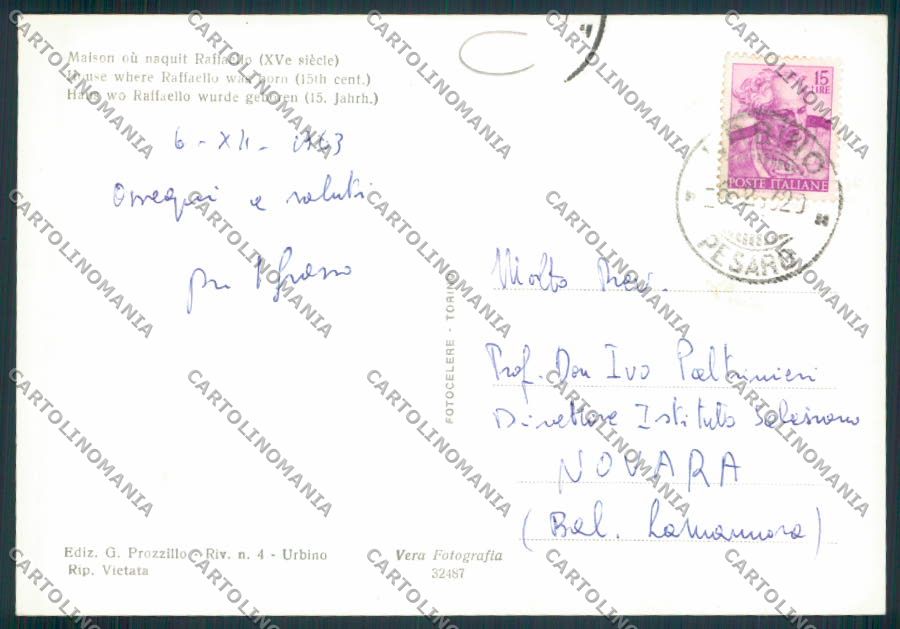 Maison où naquit Raffaello (XVe siècle)
House where Raffaello was born (15th cent.)
Haus wo Raffaello wurde geboren (15. Jahrh.)
6 - XII - 1963
Ossequi e saluti
15
LIRE
POSTE ITALIANE
URBINO
PESARO
FOTOCELERE - TORINO
Molto Rev.
Prof. Don Ivo Paltrinieri
Direttore Istituto Salesiano
NOVARA
(Bal. Lamarmora)
Ediz. G. Prozzillo - Riv. n. 4 - Urbino
Rip. Vietata
Vera Fotografia
32487
CARTOLINOMANIA